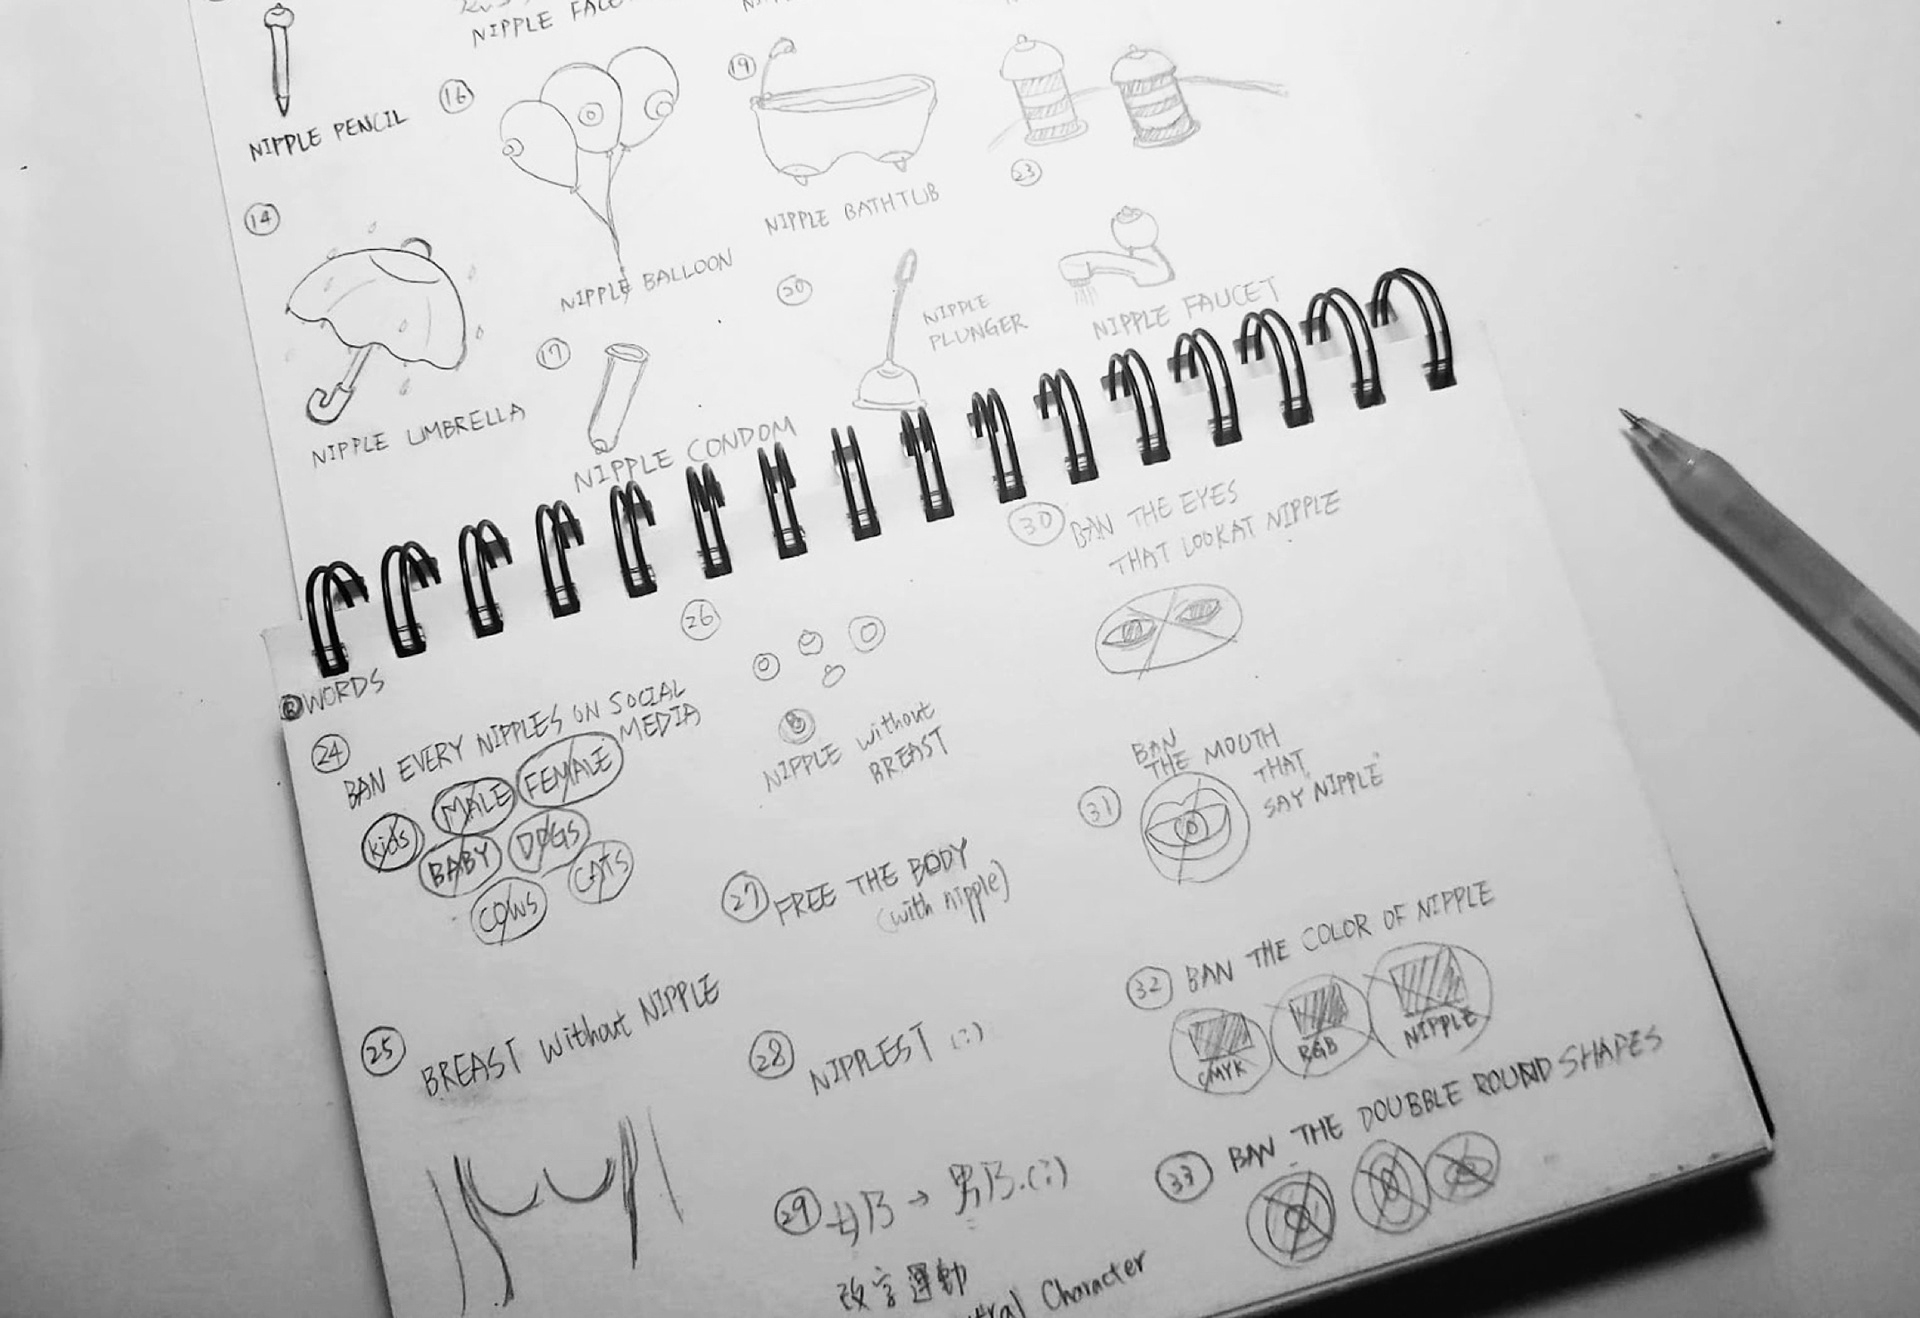 NIPPLE
NIPPLE PENCIL
14
NIPPLE UMBRELLA
16
NIPPLE BALLOON
17
NIPPLE CONDOM
19
NIPPLE BATHTUB
20
NIPPLE
PLUNGER
23
NIPPLE FAUCET
WORDS
24
BAN EVERY NIPPLES ON SOCIAL
MEDIA
kids
MALE
FEMALE
BABY
DOGS
COWS
CATS
25
BREAST without NIPPLE
26
NIPPLE without
BREAST
27
FREE THE BODY
(with nipple)
28
NIPPLEST (:)
29
→ 男乃.(:)
改言運動
Character
30
BAN THE EYES
THAT LOOKAT NIPPLE
31
BAN
THE MOUTH
THAT
SAY "NIPPLE"
32
BAN THE COLOR OF NIPPLE
CMYK
RGB
NIPPLE
33
BAN THE DOUBBLE ROUND SHAPES